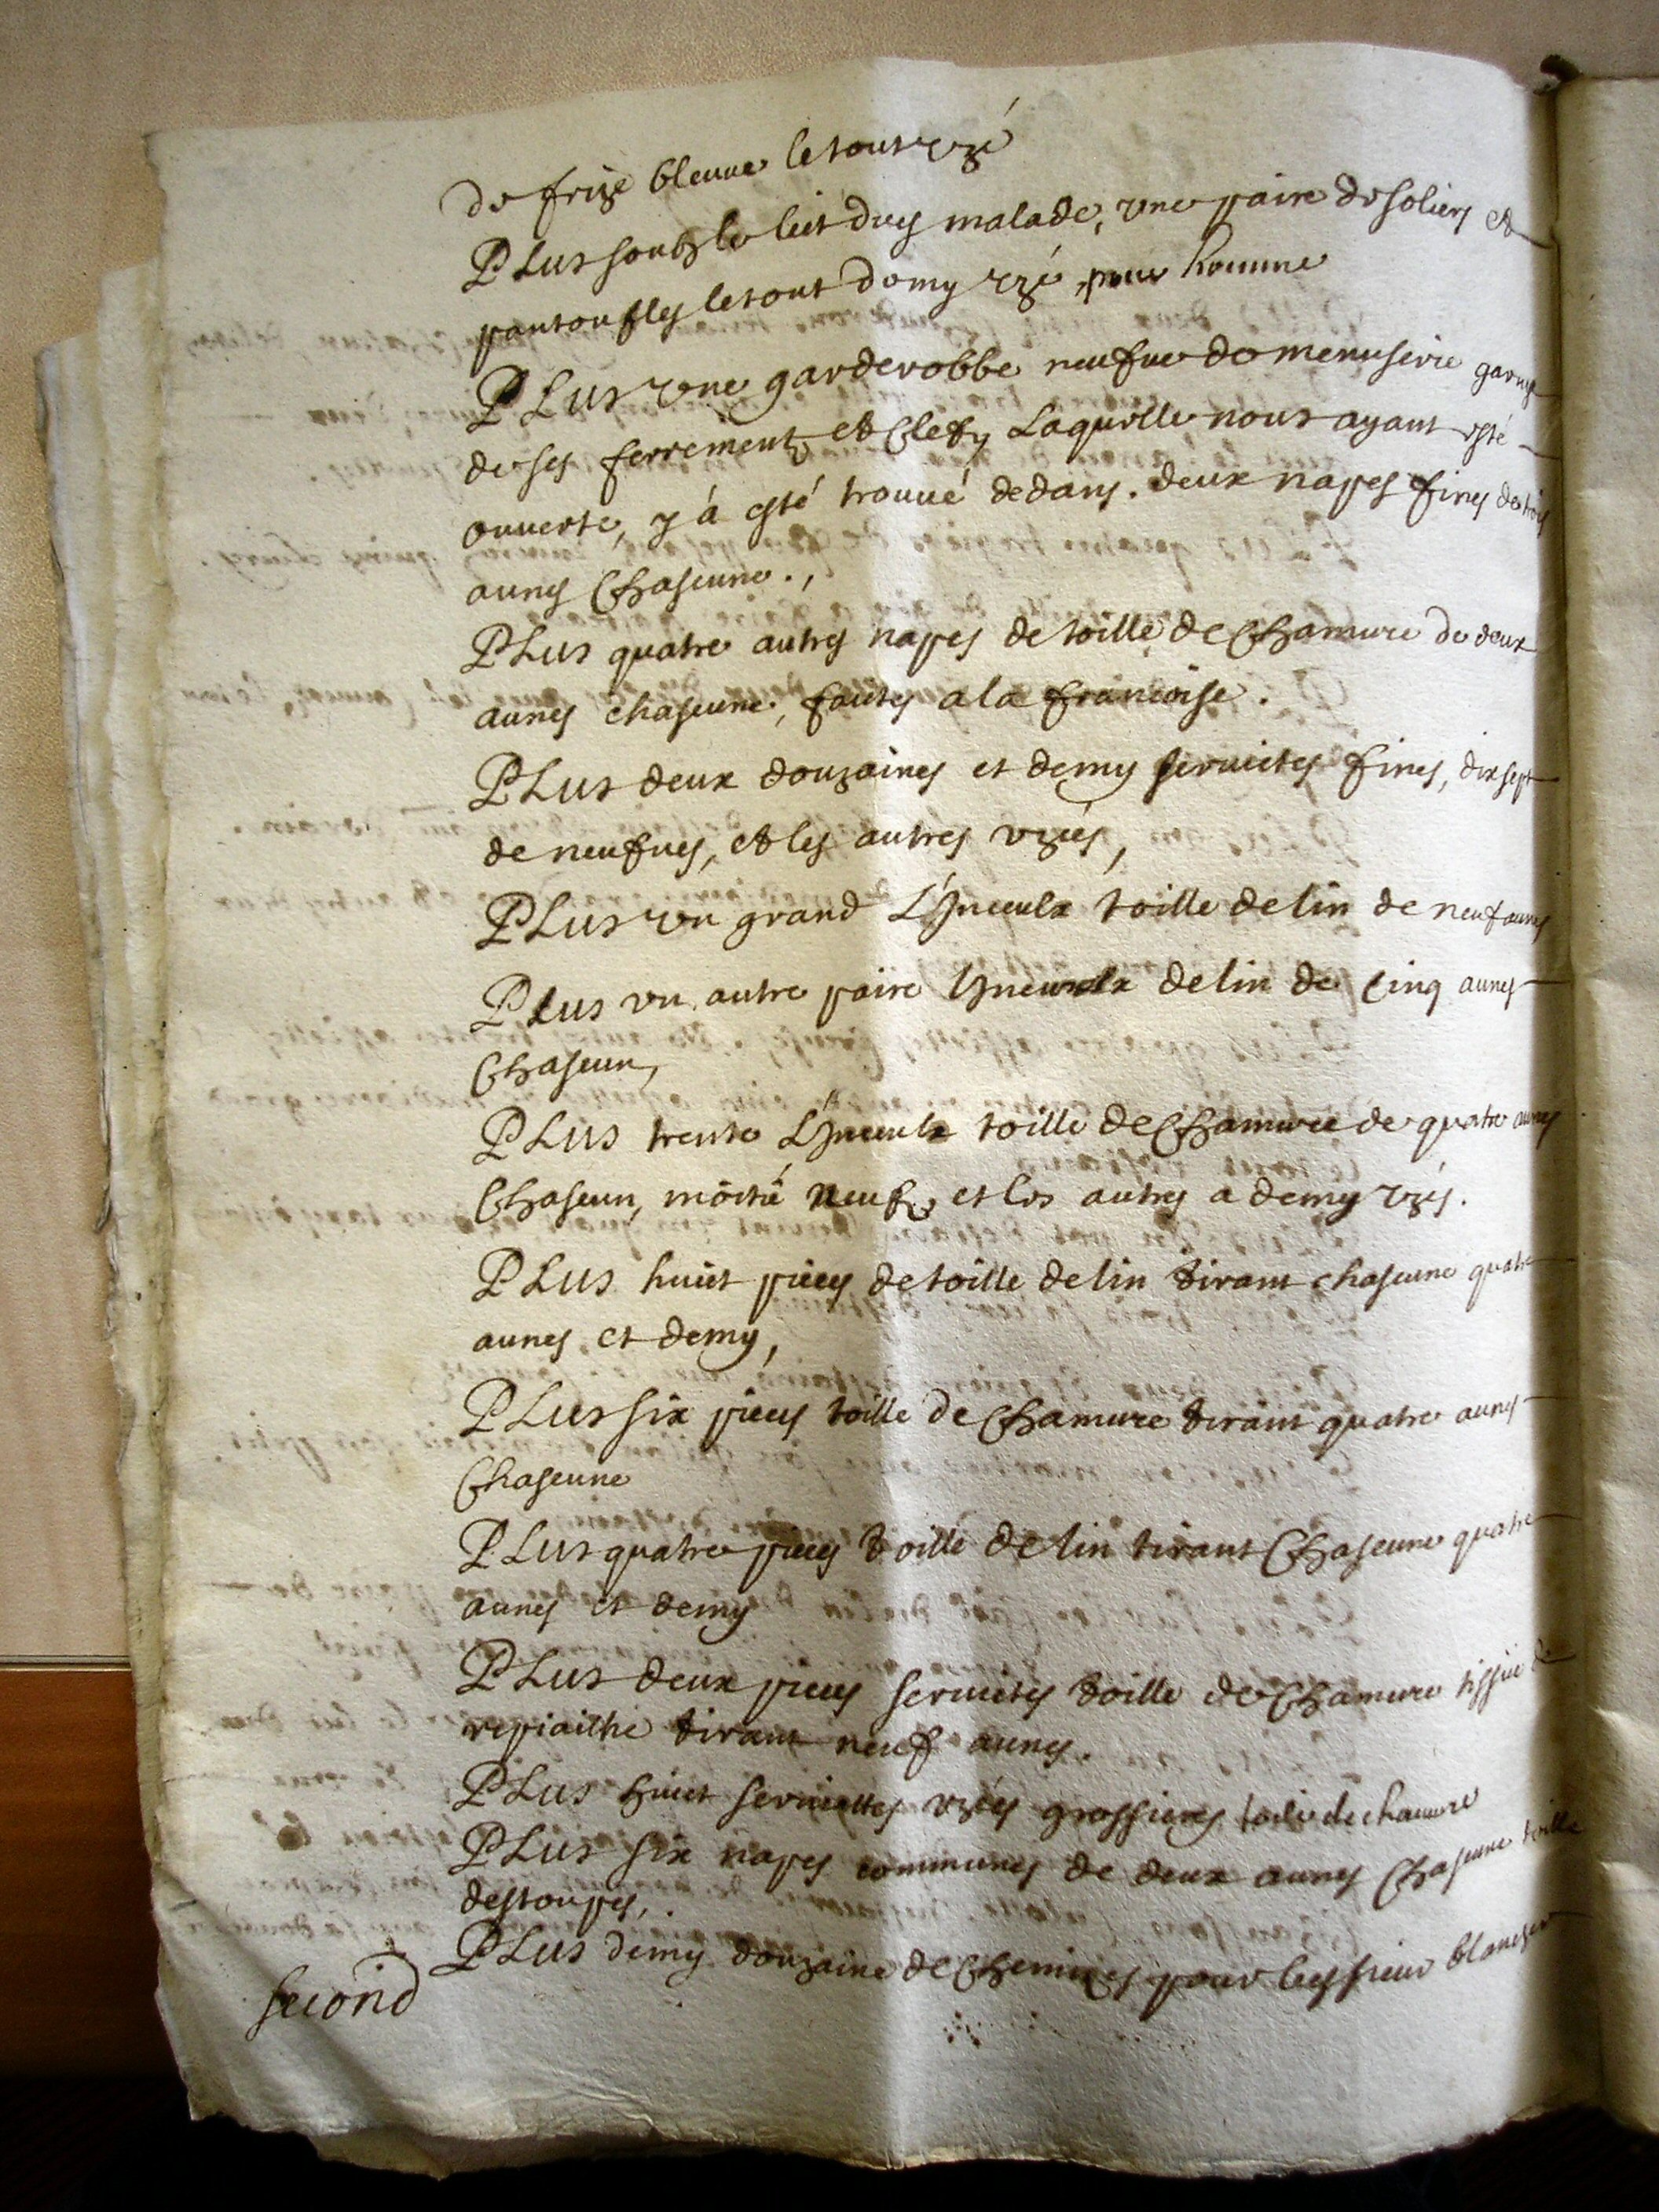 de frize bleuue le tout vzé
PLus soubz le lict duy malade, vne paire de soliers et
pantoufles le tout demy vzé, pour homme
PLus vne garderobbe neufue de menuserie garnye
de ses ferrementz et clefz Laquelle nous ayant esté
ouuerte, y á esté trouué dedans. deux napes fines de trois
aunes Chascune.,
PLus quatre autres napes de toille de Chamure de deux
aunes chascune, faites a la francoise.
PLus deux douzaines et demy seruietes fines, dix sept
de neufues, et les autres vzées,
PLus vn grand Lynceulx toille de lin de neuf aunes
PLus vn autre paire lynceulx de lin de cinq aunes
Chascun,
PLus trente Lynceulx toille de Chamure de quatre aunes
Chascun, moitié neufz et les autres a demy vzés.
PLus huict pieces de toille de lin tirant chascune quatre
aunes et demy,
PLus six pieces toille de Chamure tirant quatre aunes
Chascune
PLus quatre pieces toille de lin tirant Chascune quatre
aunes et demy
PLus deux pieces seruietes toille de Chamure tissue de
tirant neuf aunes.
PLus huict seruiettes vzées grossieres toile de chamure
PLus six napes communes de deux aunes Chascune toille
destoupes,.
PLus demy douzaine de Chemizes pour led sieur blanches
second